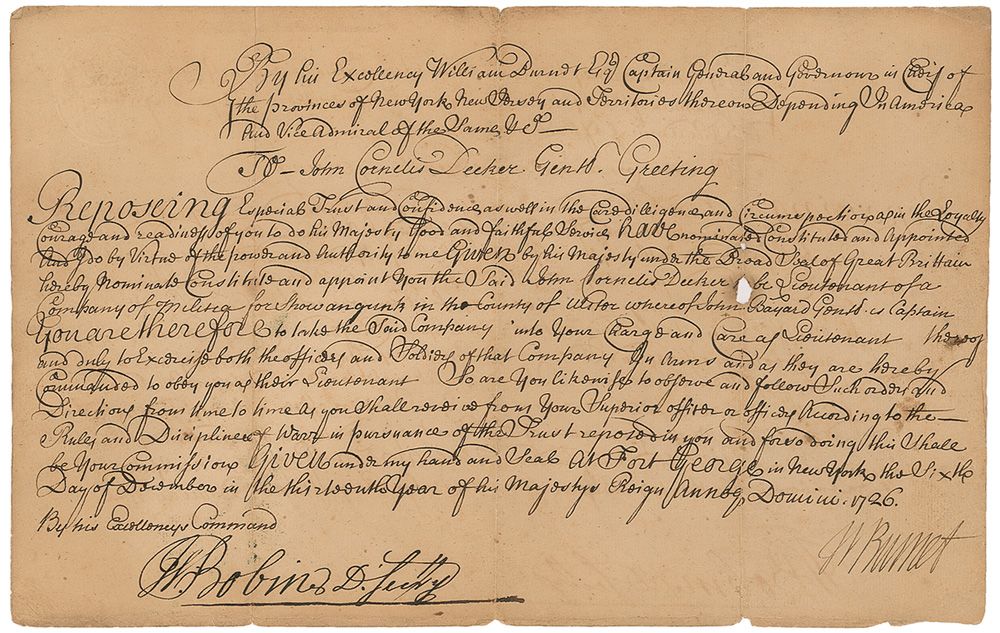 By his Excellency William Burnet Esqr Captain General and Governour in Chief of
the provinces of New York New Jersey and Territories thereon Depending In America
And Vice Admiral of the Same &c
To John Cornelis Decker Gentl. Greeting
Reposeing Especial Trust and Confidence as well in the Care diligence and Circumspection as in the Loyalty
Courage and readiness of you to do his Majesty good and faithful Service have nominated Constituted and Appointed
And I do by Virtue of the power and Authority to me Given by his Majesty under the Broad Seal of Great Brittain
hereby Nominate Constitute and appoint You the Said John Cornelis Decker be Lieutenant of a
Company of Militia for Showangunk in the County of Ulster whereof John Bayard Gentl. is Captain
You are therefore to take the Said Company into Your Charge and Care as Lieutenant thereof
and duly to Exercise both the officers and Soldiers of that Company In Arms and as they are hereby
Commanded to obey you as their Lieutenant So are You likewise to observe and follow Such orders and
Directions from time to time as you Shall receive from Your Superior officer or officers According to the
Rules and Discipline of Warr in pursuance of the Trust reposed in you and for so doing this Shall
be Your Commission Given under my hand and Seal At Fort George in New York the Sixth
Day of December in the thirteenth Year of his Majestys Reign Annoq Domini. 1726.
By his Excellencys Command
W Burnet
Bobin D. Secry